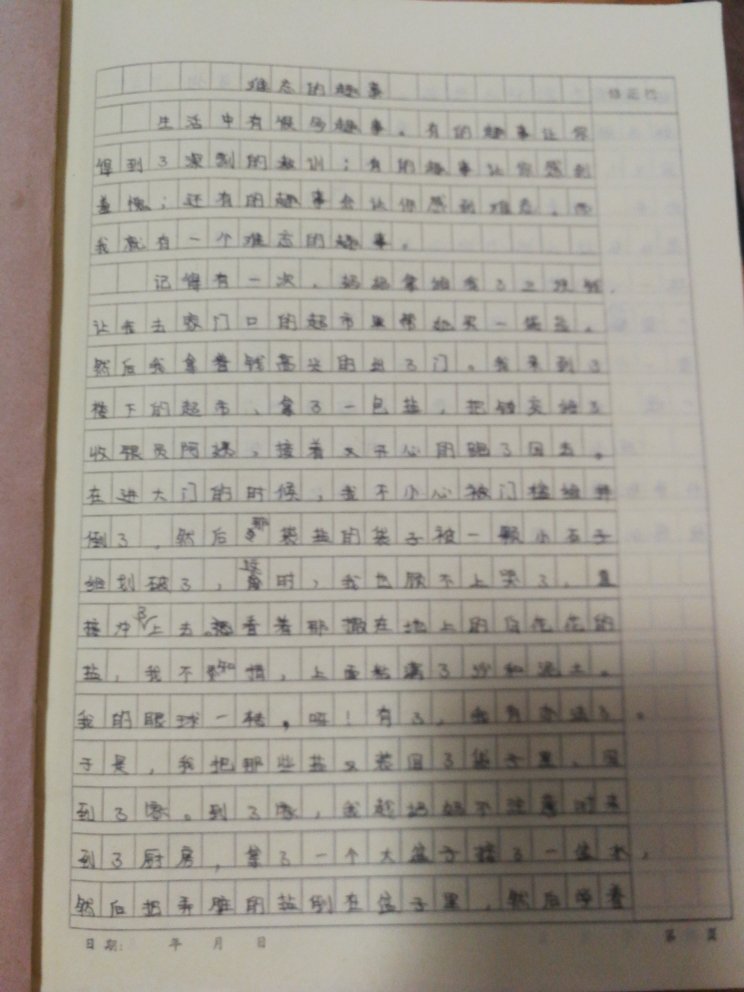 难忘的趣事
生活中有很多趣事。有的趣事让你
得到了深刻的教训；有的趣事让你感到
羞愧；还有的趣事会让你感到难忘。而
我就有一个难忘的趣事。
记得有一次，妈妈拿给我了三块钱，
让我去家门口的超市里帮她买一袋盐。
然后我拿着钱高兴的出了门。我来到了
楼下的超市，拿了一包盐，把钱交给了
收银员阿姨，接着又开心的跑了回去。
在进大门的时候，我不小心被门槛给绊
倒了，然后那袋盐的袋子被一颗小石子
给划破了，这时，我也顾不上哭了，直
接冲了上去。看着那撒在地上的白花花的
盐，我不知情，上面粘满了沙和泥土。
我的眼球一转，呀！有了，我有办法了。
于是，我把那些盐又装回了袋子里，回
到了家。到了家，我趁妈妈不注意时来
到了厨房，拿了一个大盆子接了一盆水，
然后把弄脏的盐倒在盆子里，然后
日期： 年 月 日
第 页